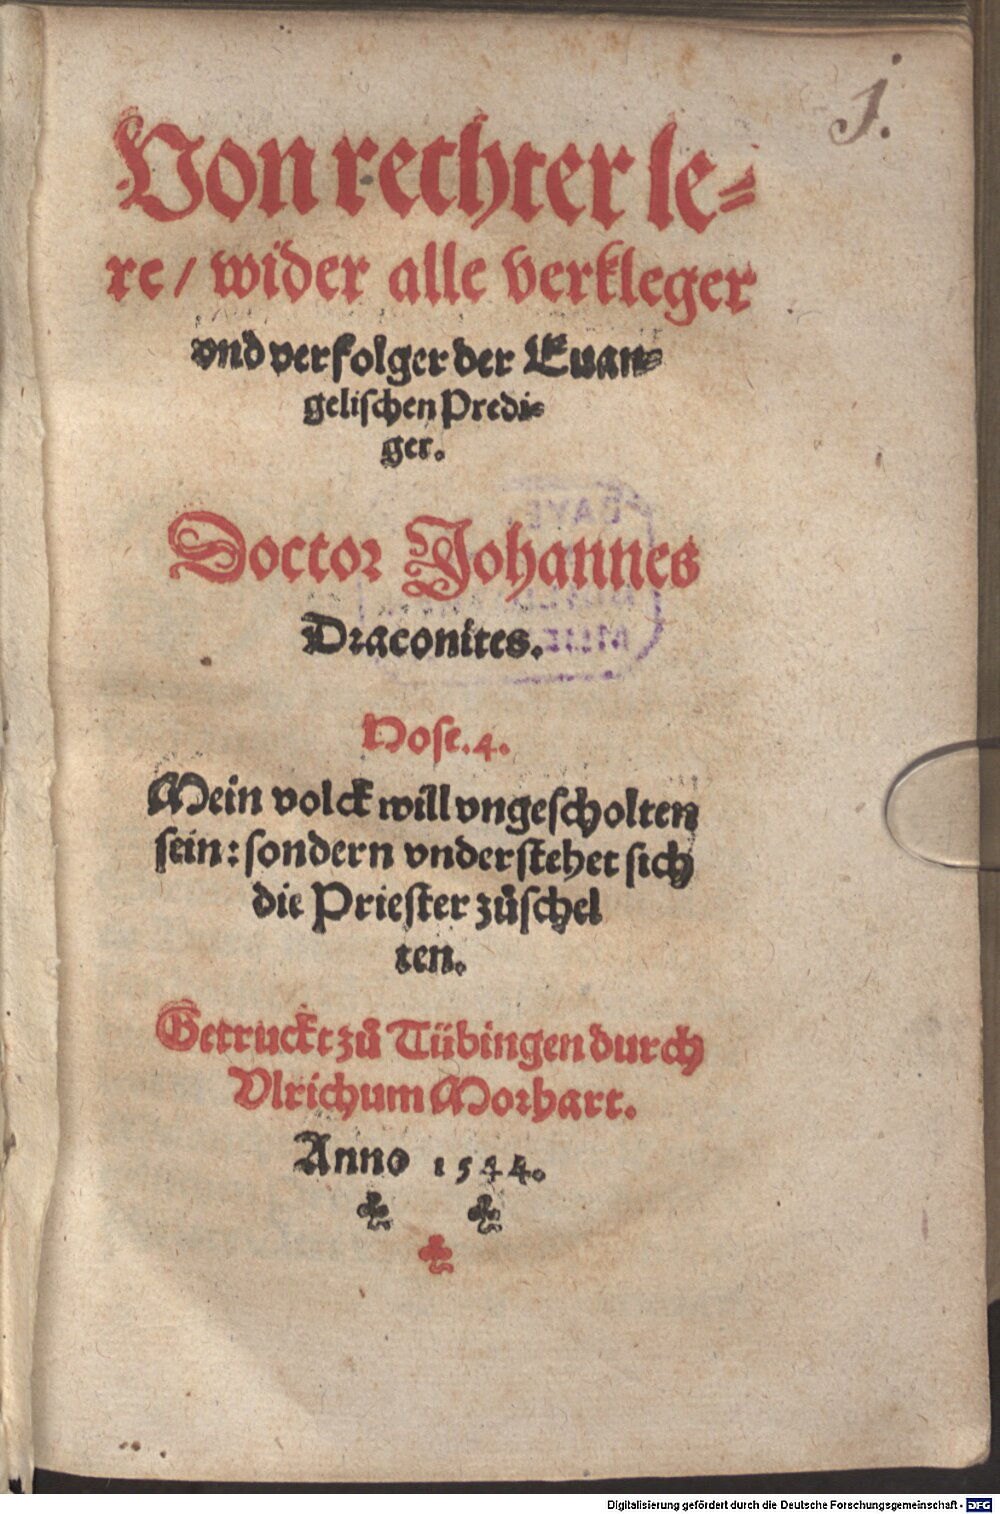 j.
Von rechter le⸗
re / wider alle verkleger
vnd verfolger der Euan⸗
gelischen Predi⸗
ger.
Doctor Johannes
Draconites.
Hose. 4.
Mein volck will vngescholten
sein: sondern vnderstehet sich
die Priester zůschel
ten.
Getruckt zů Tübingen durch
Vlrichum Morhart.
Anno 1544.
Digitalisierung gefördert durch die Deutsche Forschungsgemeinschaft - DFG